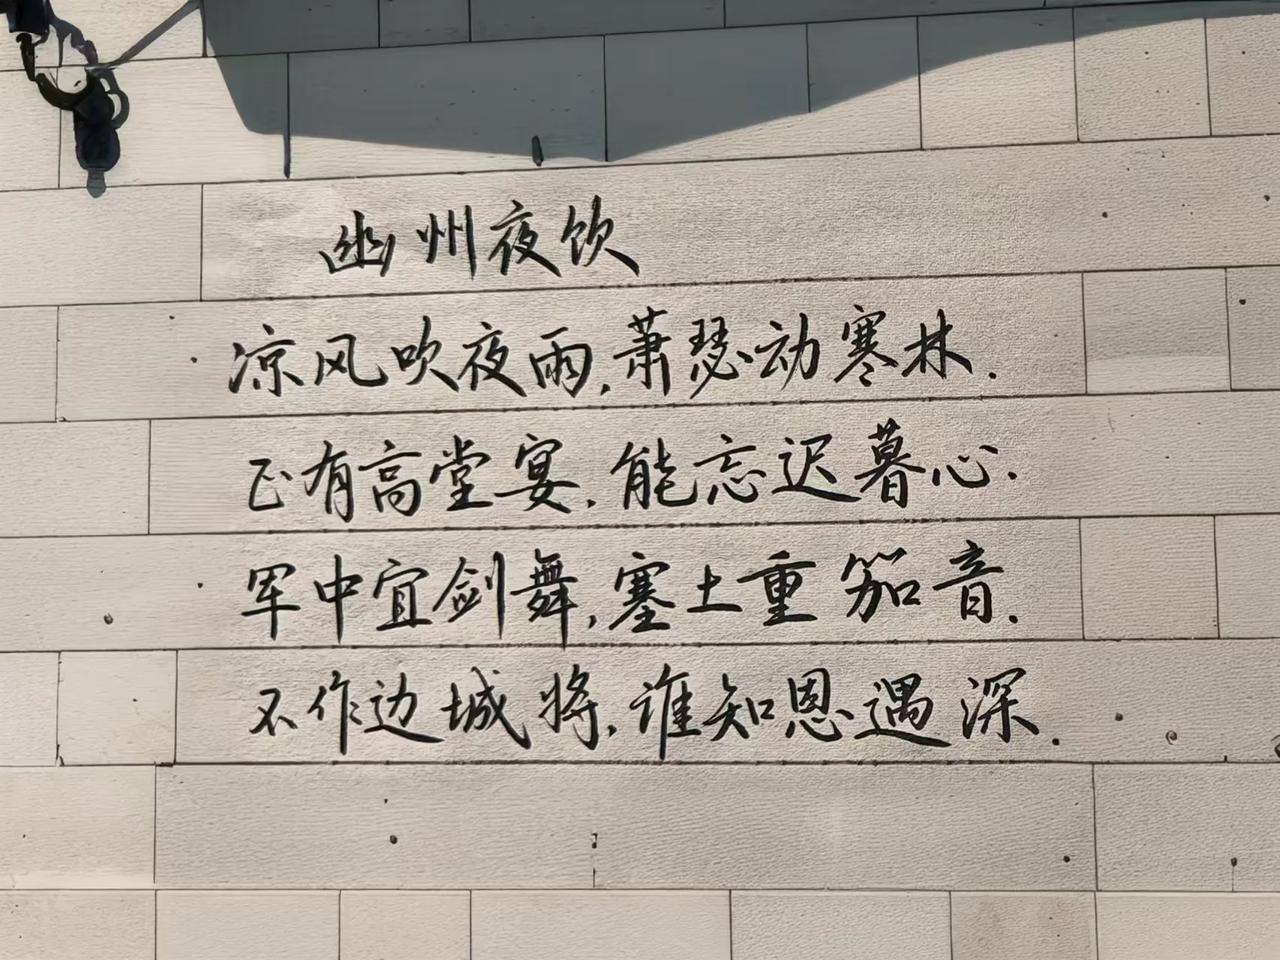 幽州夜饮
凉风吹夜雨,萧瑟动寒林.
正有高堂宴,能忘迟暮心.
军中宜剑舞,塞土重笳音.
不作边城将,谁知恩遇深.